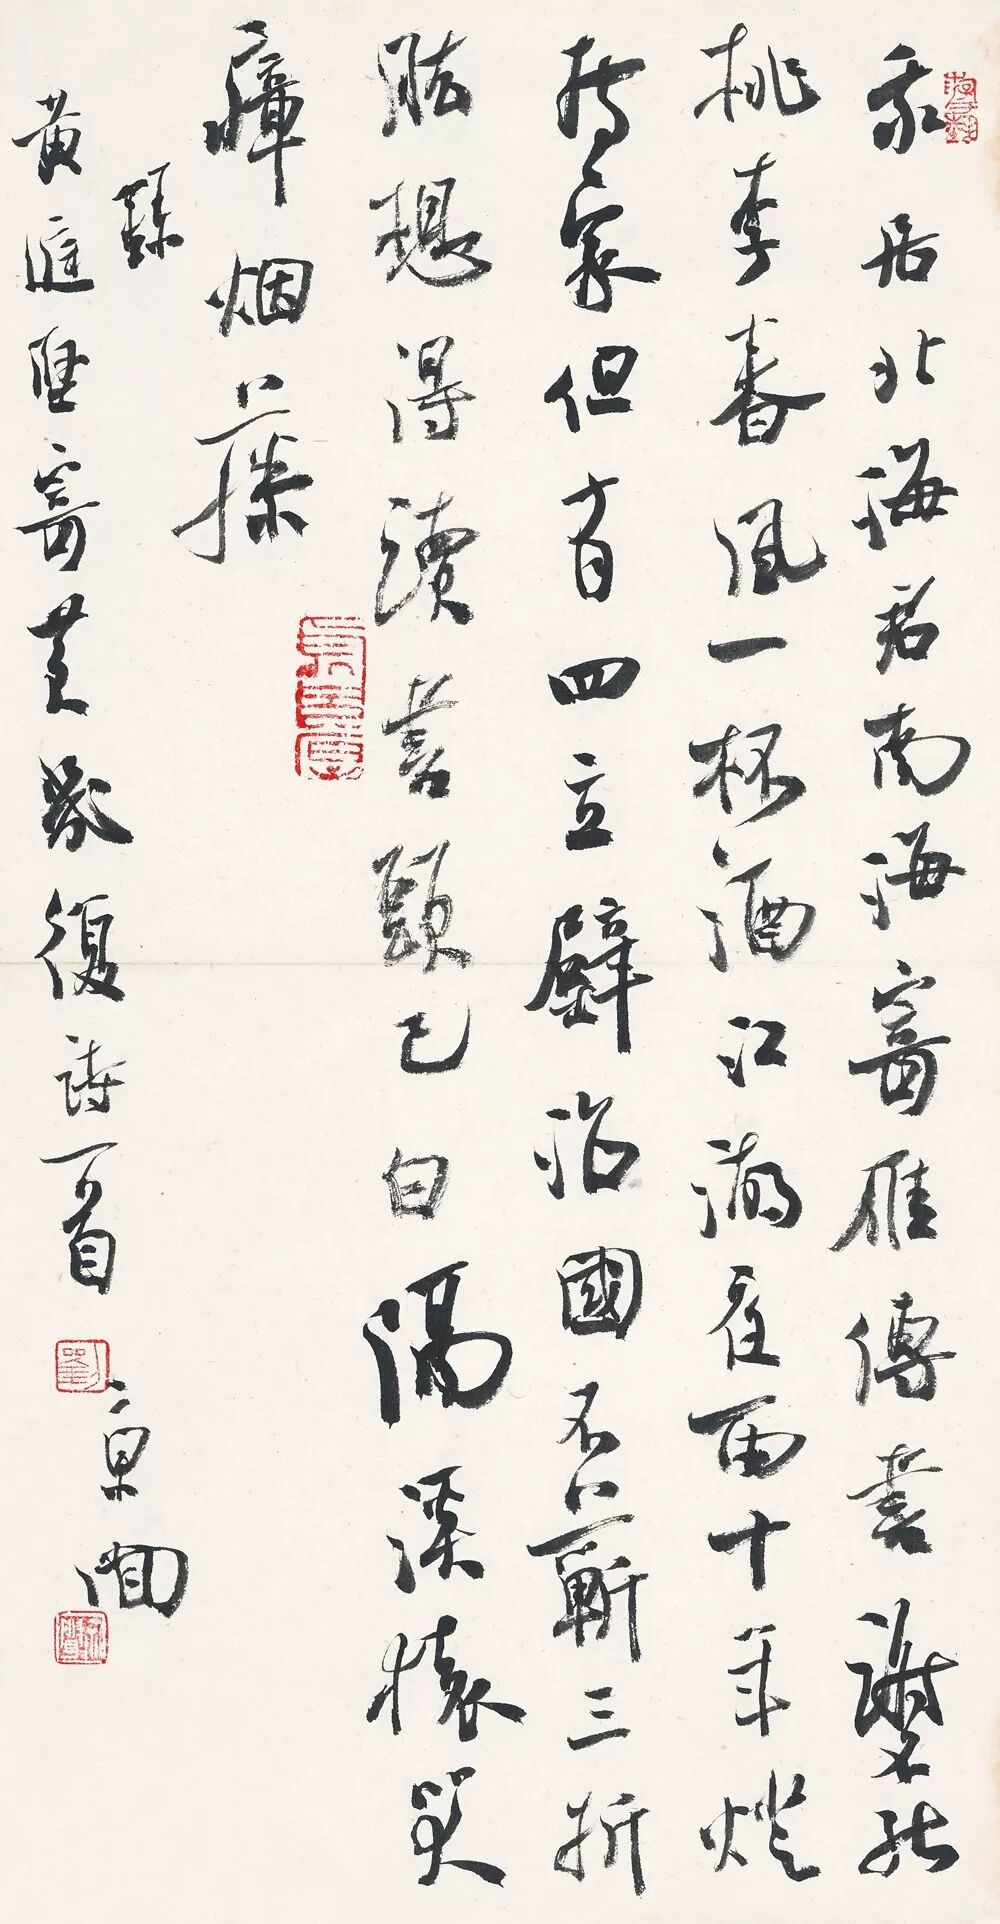 我居北海君南海寄雁傳書謝不能
桃李春風一杯酒江湖夜雨十年燈
持家但有四立壁治國不蘄三折
肱想得讀書頭已白隔溪猿哭
瘴烟藤
錄
黃庭堅寄黃幾復詩一首